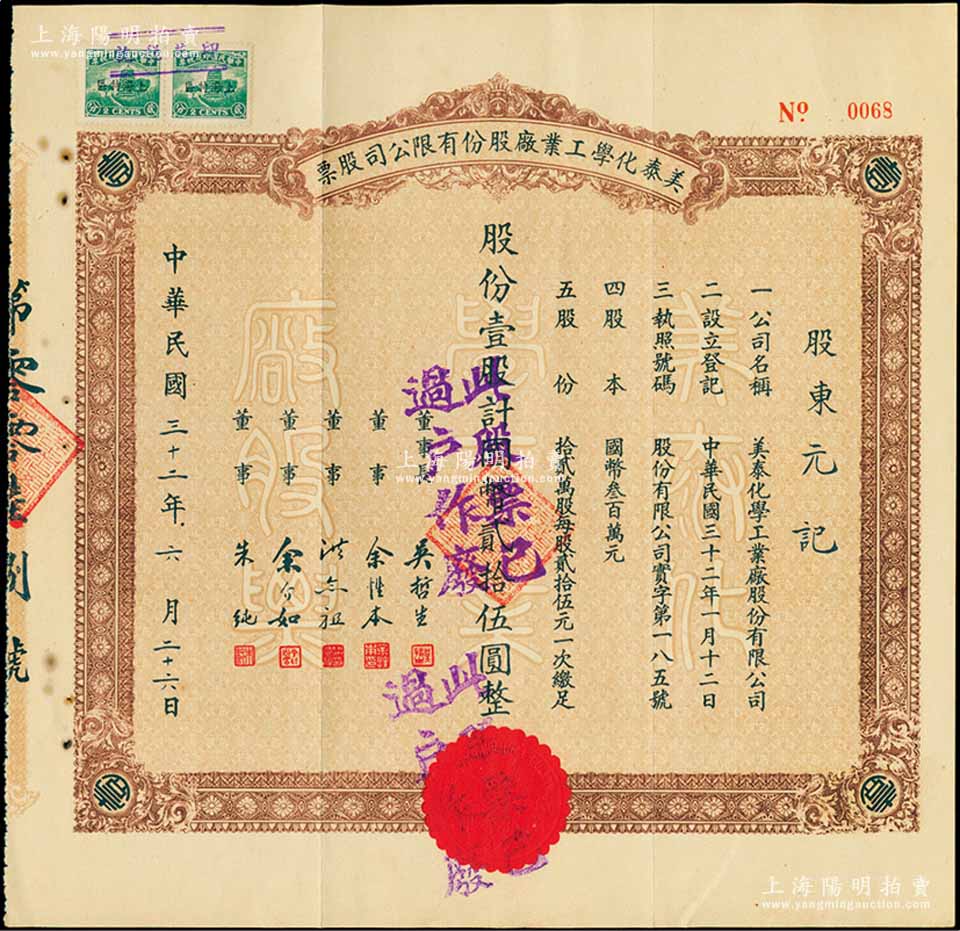 上海陽明拍賣
www.yangmingauction.com
2 CENTS
2 CENTS
Nº 0068
美泰化學工業廠股份有限公司股票
股東元記
一公司名稱 美泰化學工業廠股份有限公司
二設立登記 中華民國三十二年一月十二日
三執照號碼 股份有限公司實字第一八五號
四股本 國幣叁百萬元
五股份 拾貳萬股每股貳拾伍元一次繳足
股份壹股計國幣貳拾伍圓整
董事長
董事 余性本
董事
董事
董事 朱純
中華民國三十二年六月二十六日
此股票已
過户作廢
此
過户
廢
上海陽明拍賣
www.yangmingauction.com
上海陽明拍賣
www.yangmingauction.com